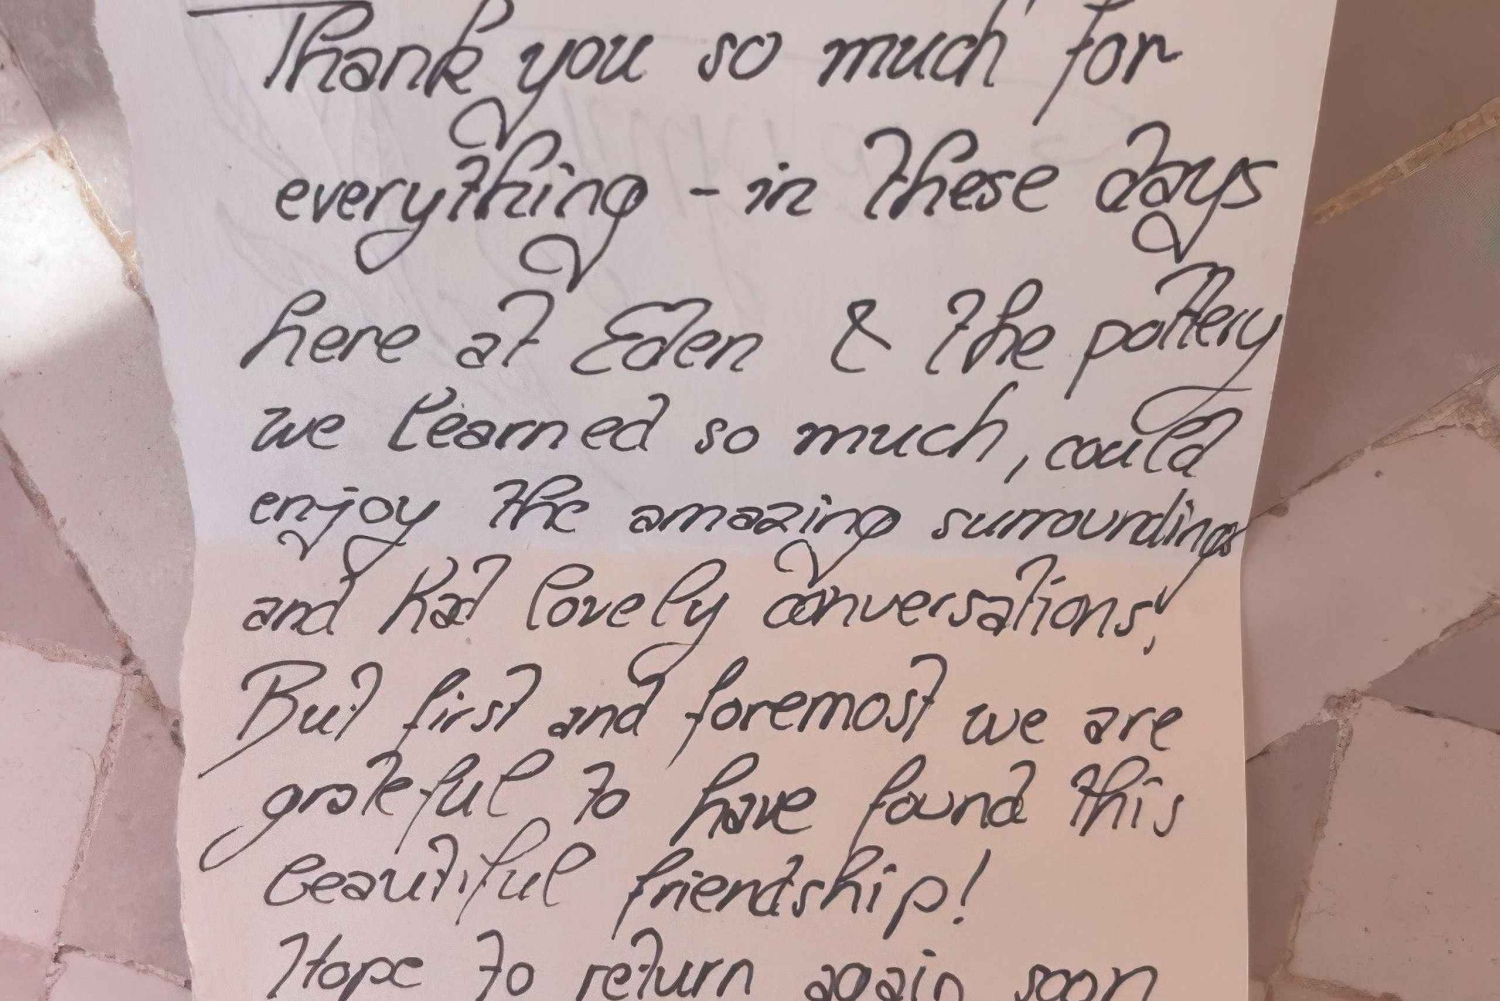 Thank you so much for
everything - in these days
here at Eden & the pottery
we learned so much, could
enjoy the amazing surroundings
and had lovely conversations!
But first and foremost we are
grateful to have found this
beautiful friendship!
Hope to return again soon